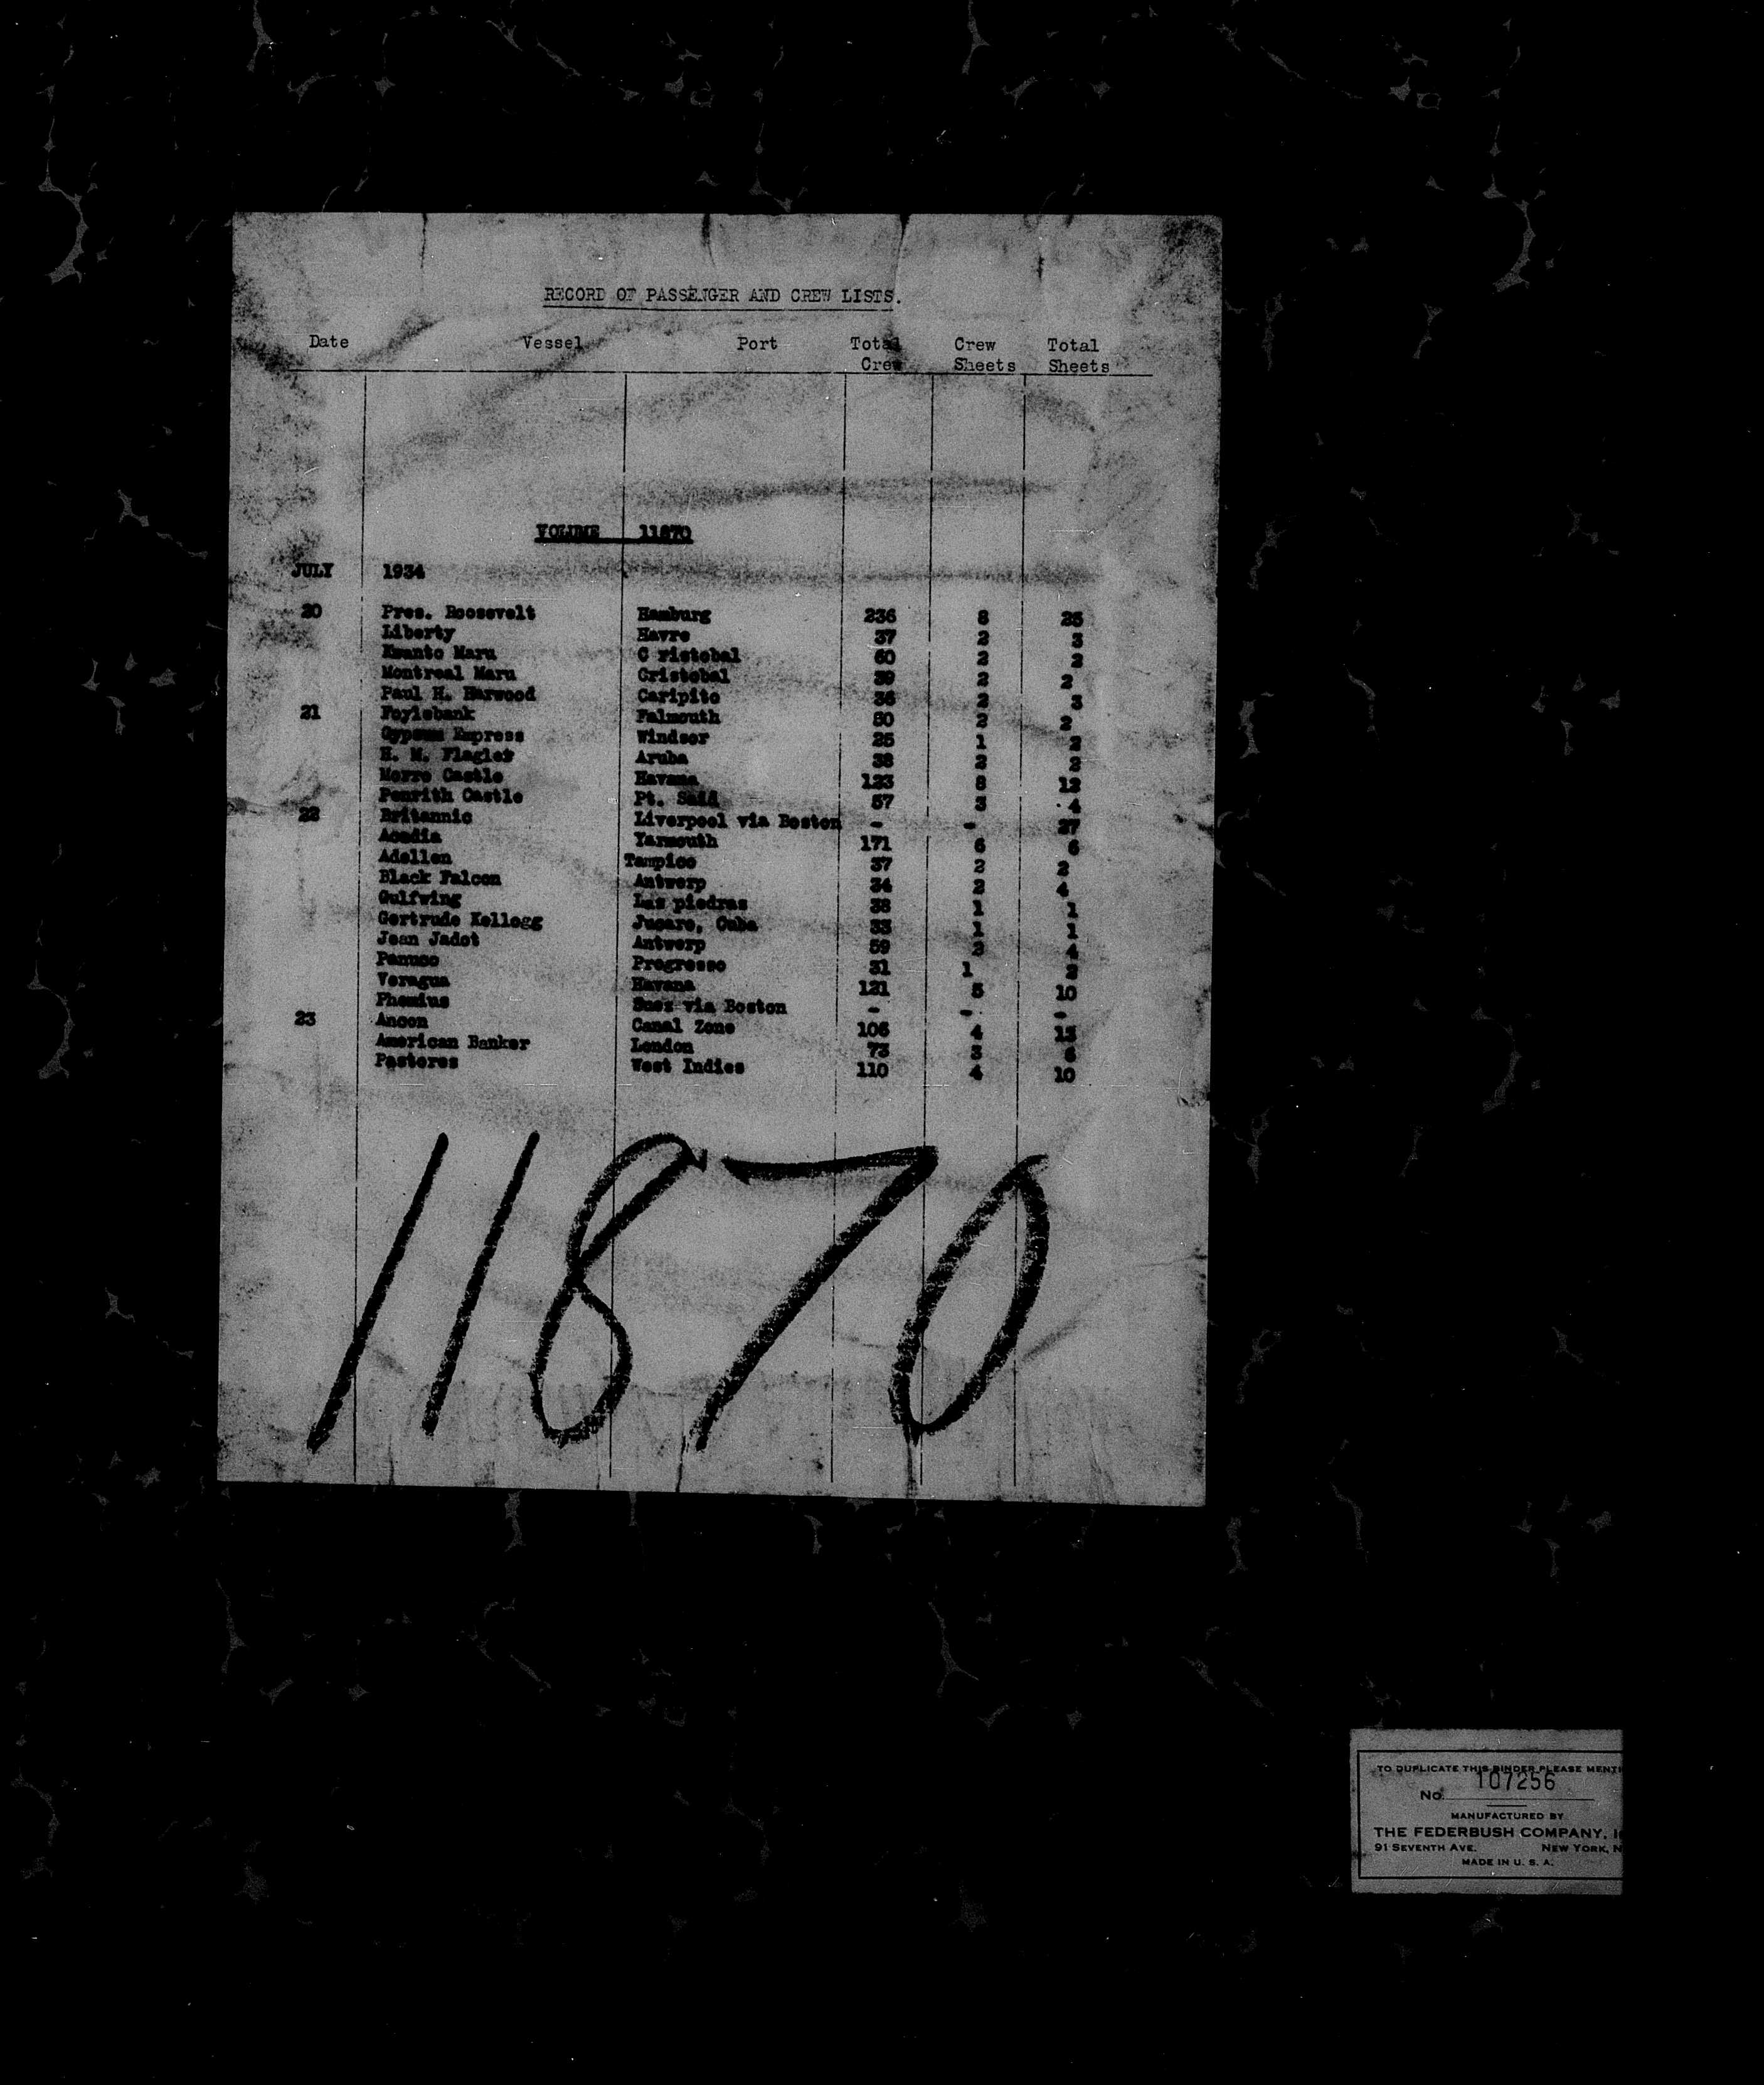 RECORD OF PASSENGER AND CREW LISTS.
Date Vessel Port Total Crew Total
Crew Sheets Sheets
VOLUME 11870
JULY 1934
20 Pres. Roosevelt Hamburg 236 8 25
Liberty Havre 37 2 3
Kwanto Maru C ristobal 60 2 2
Montreal Maru Cristobal 39 2 2
Paul H. Harwood Caripito 36 2 3
21 Foylebank Falmouth 80 2 2
Gypsum Express Windsor 25 1 2
H. M. Flagler Aruba 38 2 2
Morro Castle Havana 123 8 12
Penrith Castle Pt. Said 57 3 4
22 Britannic Liverpool via Boston - - 27
Acadia Yarmouth 171 6 6
Adellen Tampico 37 2 2
Black Falcon Antwerp 34 2 4
Gulfwing Las piedras 38 1 1
Gertrude Kellogg Jucaro, Cuba 33 1 1
Jean Jadot Antwerp 59 4
Panuco Progresso 31 1 2
Veragua Havana 121 5 10
Phemius Suez via Boston - - -
23 Ancon Canal Zone 4
American Banker London 73 3 6
Pastores West Indies 110 4 10
11870
TO DUPLICATE THIS BINDER PLEASE
No. 107256
MANUFACTURED BY
THE FEDERBUSH COMPANY,
91 SEVENTH AVE. NEW YORK, N
MADE IN U. S. A.